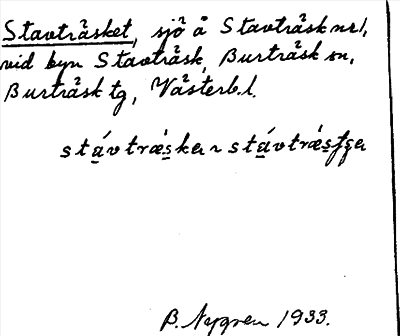 Stavträsket, sjö å Stavträsk nr 1,
vid byn Stavträsk, Burträsk sn,
Burträsk tg, Västerb. l.
stávtræska ~ stávtræsʃʒa
B. Nygren 1933.